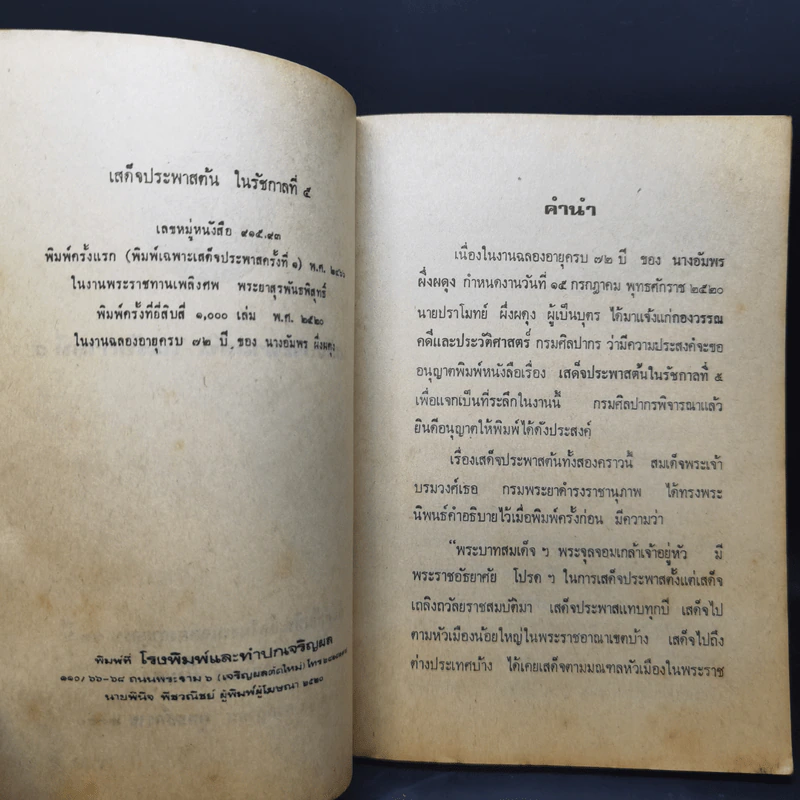 เสด็จประพาสต้น ในรัชกาลที่ ๕
เลขหมู่หนังสือ ๙๑๕.๙๓
พิมพ์ครั้งแรก (พิมพ์เฉพาะเสด็จประพาสครั้งที่ ๑) พ.ศ.
ในงานพระราชทานเพลิงศพ พระยาสุรพันธพิสุทธิ์
พิมพ์ครั้งที่ยี่สิบสี่ ๑,๐๐๐ เล่ม พ.ศ. ๒๕๒๐
ในงานฉลองอายุครบ ๗๒ ปี ของ นางอัมพร ผึ่งผดุง
พิมพ์ที่ โรงพิมพ์และทำปกเจริญผล
๑๑๐/๖๖-๖๘ ถนนพระราม ๖ (เจริญผลตัดใหม่) โทร
นายพินิจ พีชวณิชย์ ผู้พิมพ์ผู้โฆษณา ๒๕๒๐
คำนำ
เนื่องในงานฉลองอายุครบ ๗๒ ปี ของ นางอัมพร
ผึ่งผดุง กำหนดงานวันที่ ๑๕ กรกฎาคม พุทธศักราช ๒๕๒๐
นายปราโมทย์ ผึ่งผดุง ผู้เป็นบุตร ได้มาแจ้งแก่กองวรรณ
คดีและประวัติศาสตร์ กรมศิลปากร ว่ามีความประสงค์จะขอ
อนุญาตพิมพ์หนังสือเรื่อง เสด็จประพาสต้นในรัชกาลที่ ๕
เพื่อแจกเป็นที่ระลึกในงานนี้ กรมศิลปากรพิจารณาแล้ว
ยินดีอนุญาตให้พิมพ์ได้ดังประสงค์
เรื่องเสด็จประพาสต้นทั้งสองคราวนี้ สมเด็จพระเจ้า
บรมวงศ์เธอ กรมพระยาดำรงราชานุภาพ ได้ทรงพระ
นิพนธ์คำอธิบายไว้เมื่อพิมพ์ครั้งก่อน มีความว่า
"พระบาทสมเด็จ ฯ พระจุลจอมเกล้าเจ้าอยู่หัว มี
พระราชอัธยาศัย โปรด ฯ ในการเสด็จประพาสตั้งแต่เสด็จ
เถลิงถวัลยราชสมบัติมา เสด็จประพาสแทบทุกปี เสด็จไป
ตามหัวเมืองน้อยใหญ่ในพระราชอาณาเขตบ้าง เสด็จไปถึง
ต่างประเทศบ้าง ได้เคยเสด็จตามมณฑลหัวเมืองในพระราช